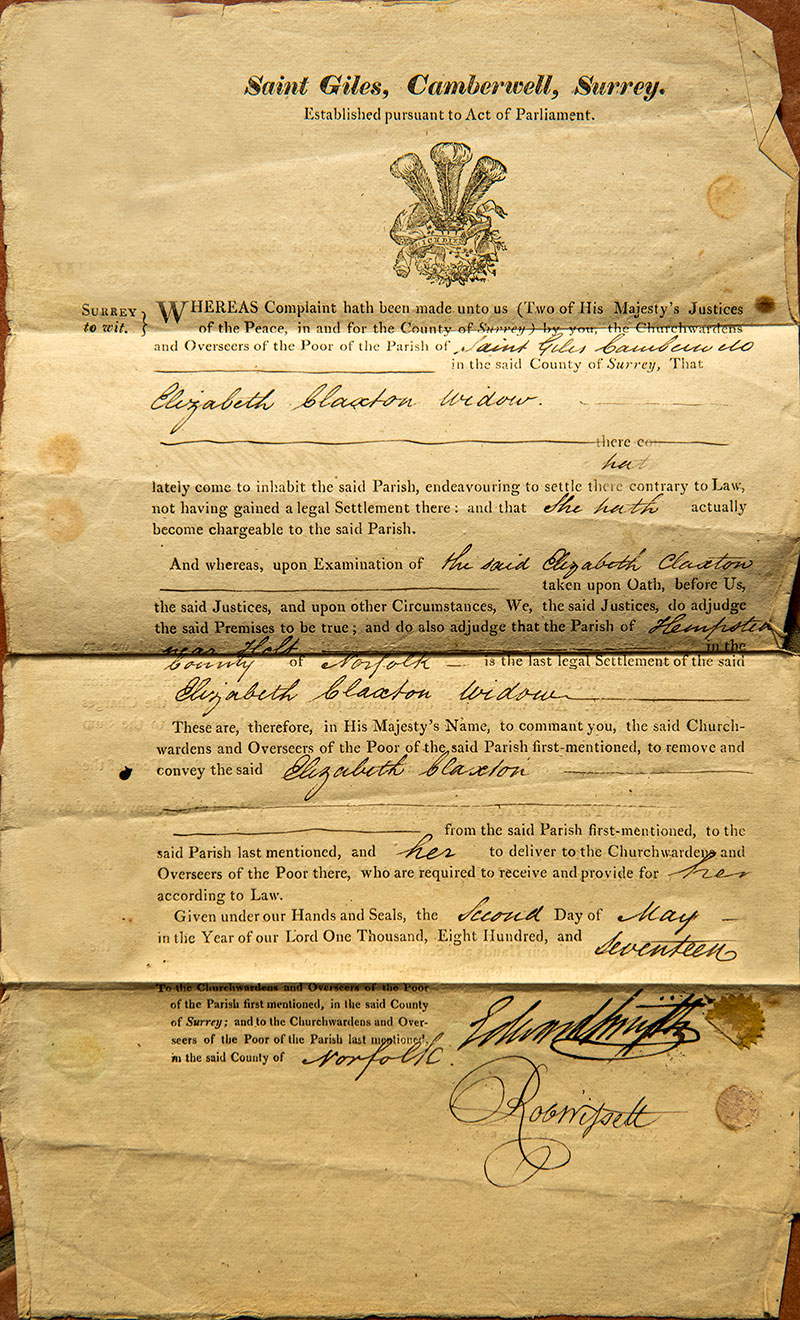 Saint Giles, Camberwell, Surrey.
Established pursuant to Act of Parliament.
ICH DIEN
SURREY
to wit. }
WHEREAS Complaint hath been made unto us (Two of His Majesty's Justices
of the Peace, in and for the County of Surrey) by you, the Churchwardens
and Overseers of the Poor of the Parish of Saint Giles Camberwell
in the said County of Surrey, That
Elizabeth Claxton Widow.
there
hat
lately come to inhabit the said Parish, endeavouring to settle there contrary to Law,
not having gained a legal Settlement there: and that She hath actually
become chargeable to the said Parish.
And whereas, upon Examination of the said Elizabeth Claxton
taken upon Oath, before Us,
the said Justices, and upon other Circumstances, We, the said Justices, do adjudge
the said Premises to be true; and do also adjudge that the Parish of Hempstead
near Holt in the
County of Norfolk is the last legal Settlement of the said
Elizabeth Claxton Widow
These are, therefore, in His Majesty's Name, to commant you, the said Church-
wardens and Overseers of the Poor of the said Parish first-mentioned, to remove and
convey the said Elizabeth Claxton
from the said Parish first-mentioned, to the
said Parish last mentioned, and her to deliver to the Churchwardens and
Overseers of the Poor there, who are required to receive and provide for her
according to Law.
Given under our Hands and Seals, the Second Day of May
in the Year of our Lord One Thousand, Eight Hundred, and Seventeen
To the Churchwardens and Overseers of the Poor
of the Parish first mentioned, in the said County
of Surrey; and to the Churchwardens and Over-
seers of the Poor of the Parish last mentioned,
in the said County of Norfolk.
Edward Smyth
Rob Wissett